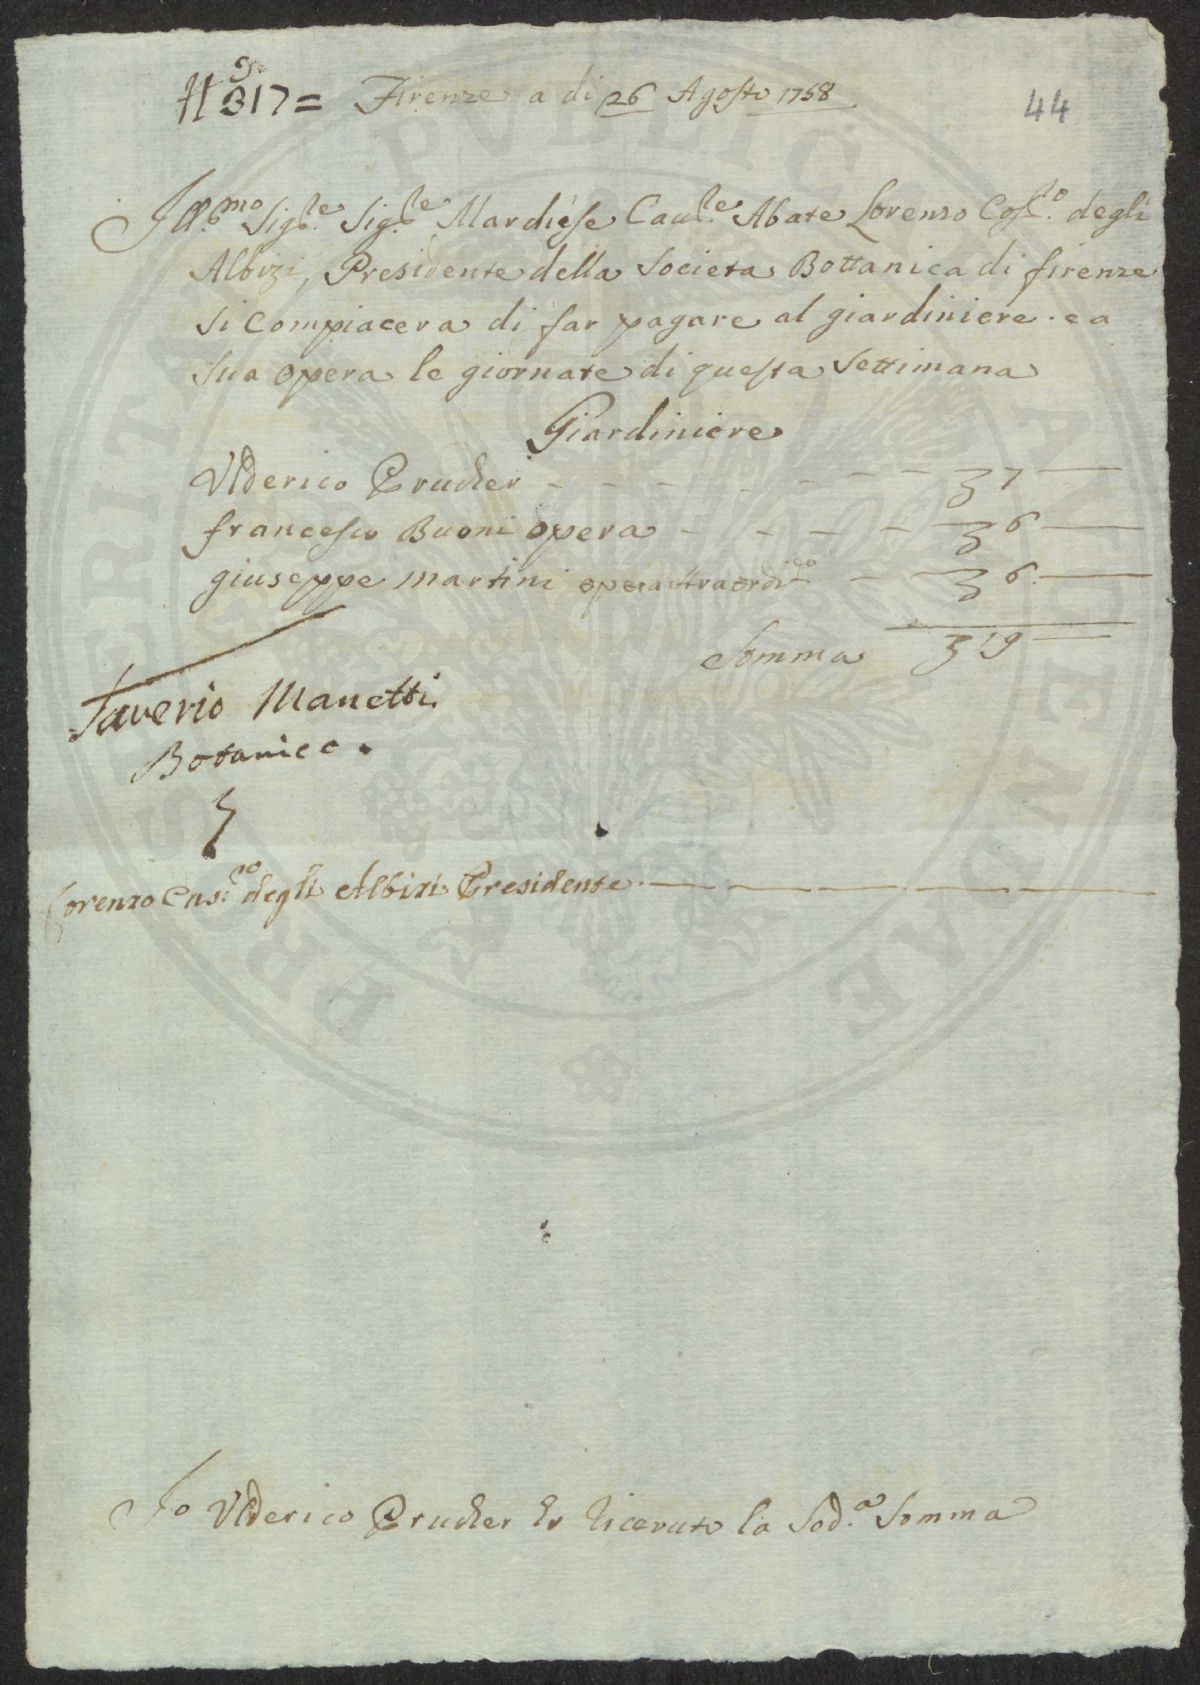 N.o 317 = Firenze a di 26 Agosto 1758
44
Ill.mo Sig.re Sig.re Marchese Cau.re Abate Lorenzo Cos.mo degli
Albizi, Presidente della Societa Bottanica di firenze
si Compiacera di far pagare al giardiniere e a
sua opera le giornate di questa Settimana
Giardiniere
Vlderico Prucher - - - - - - - - 7
francesco Buoni opera - - - - 6
giuseppe martini opera straordi.ria - 6
Somma 19
Saverio Manetti
Botanico.
Lorenzo Cas.mo degli Albizi Presidente
Io Vlderico Prucher ho riceuuto la Sod.a Somma
PROSPERITATI PVBLICAE AVGENDAE